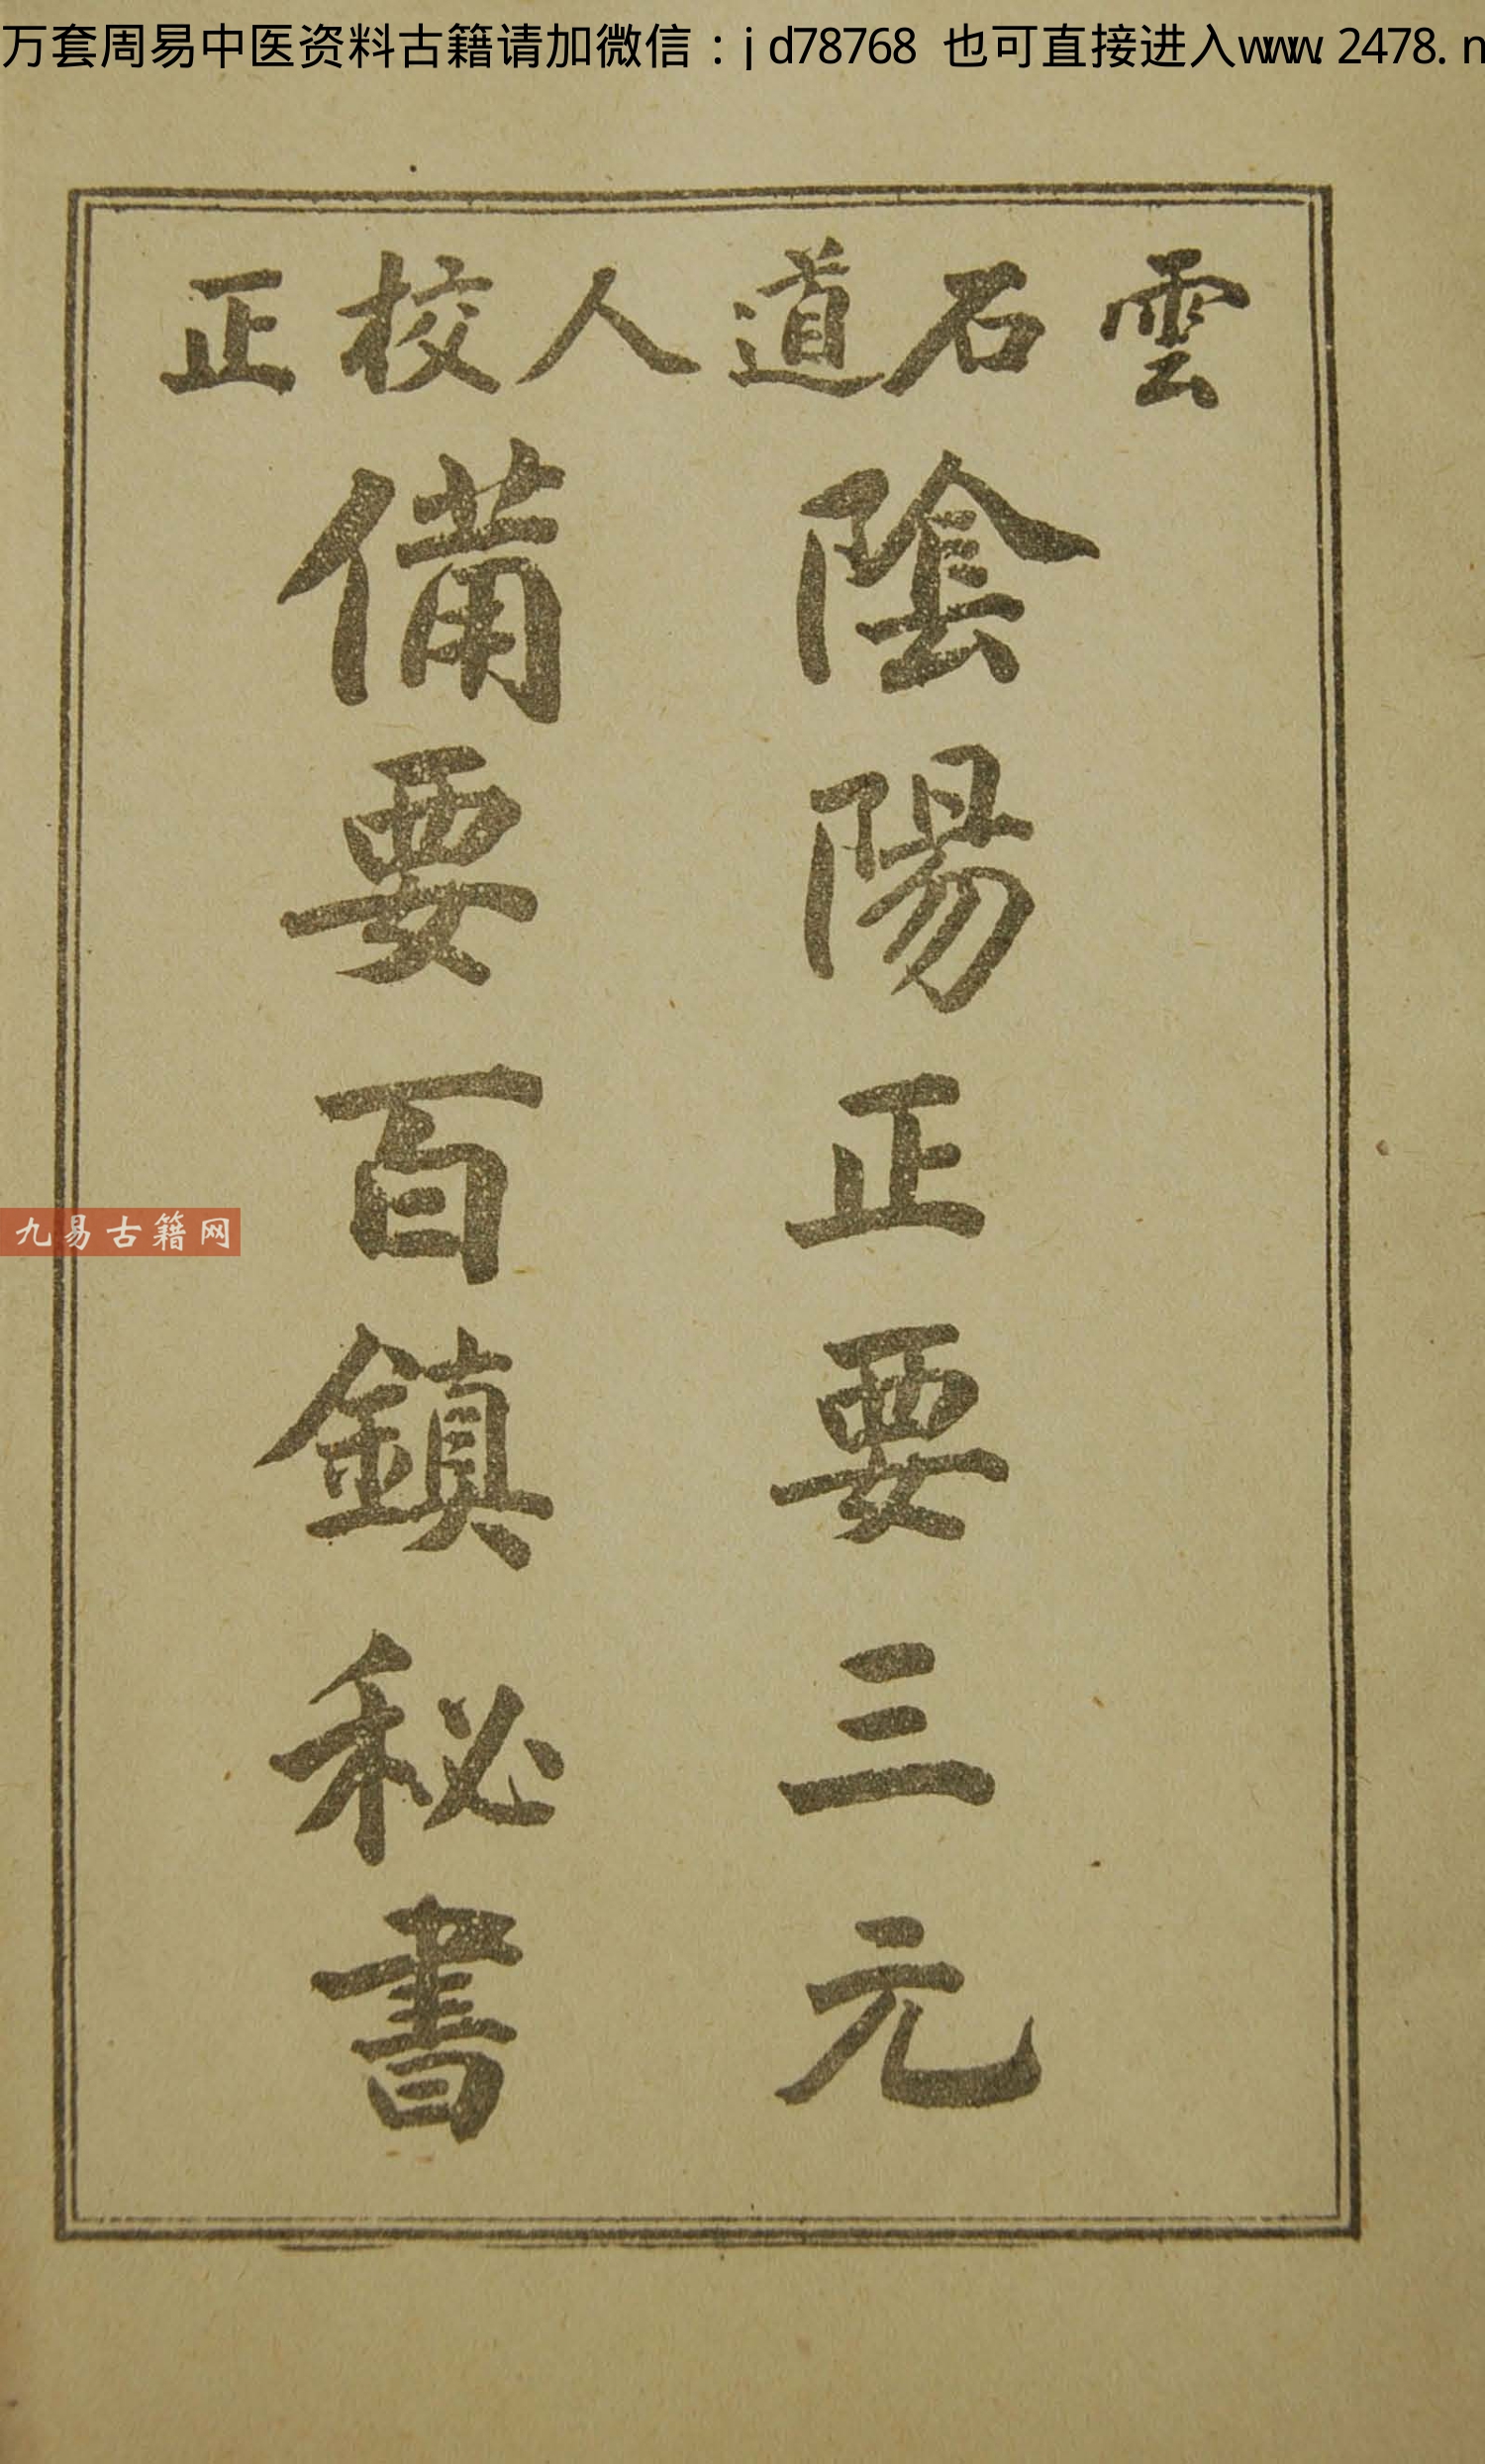 万套周易中医资料古籍请加微信：jd78768 也可直接进入www.2478.n
雲石道人校正
陰陽正要三元
備要百鎮秘書
九易古籍网